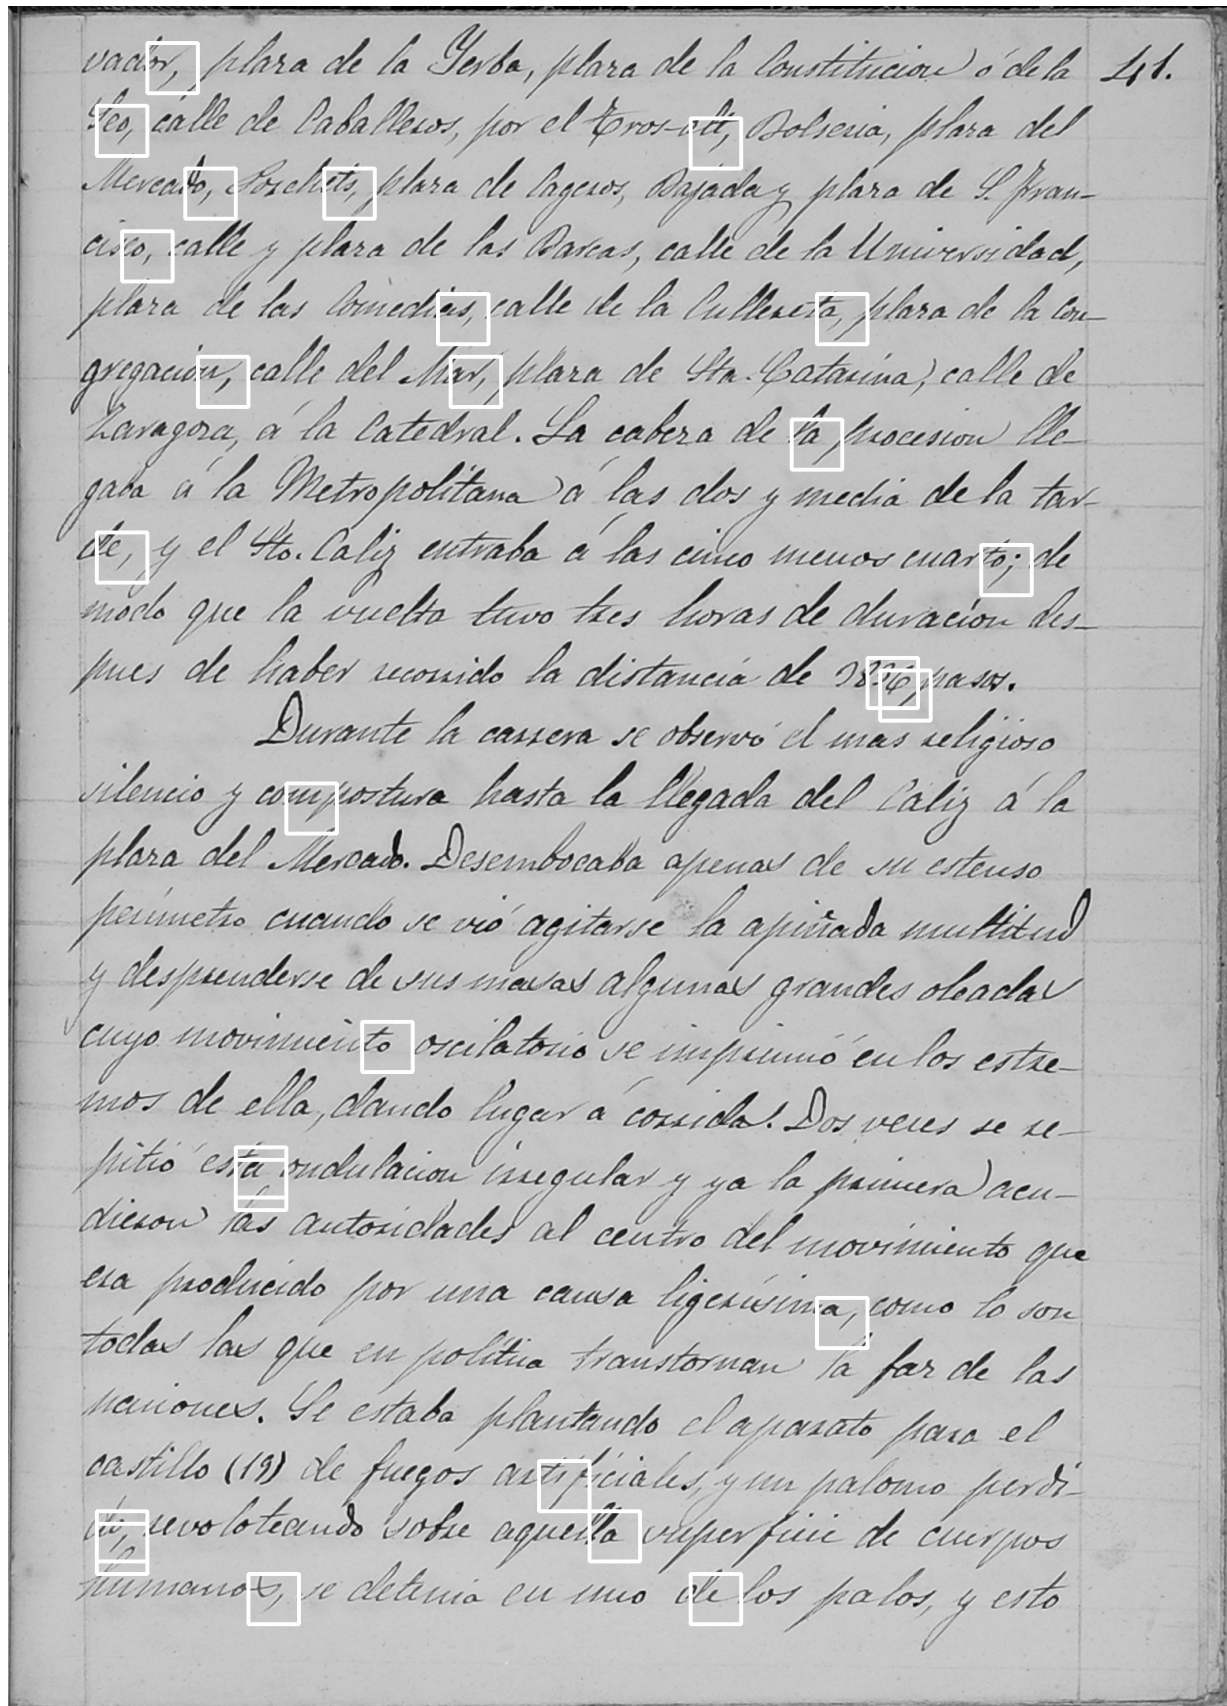 vador, plaza de la Yerba, plaza de la Constitucion ó de la 41.
Seo, calle de Caballeros, por el Tros-alt, Bolseria, plaza del
Mercado, Porchets, plaza de Cageros, Bajada y plaza de S. Fran-
cisco, calle y plaza de las Barcas, calle de la Universidad,
plaza de las Comedias, calle de la Cullereta, plaza de la Con-
gregacion, calle del Mar, plaza de Sta. Catarina, calle de
Zaragoza, á la Catedral. La cabeza de la procesion lle-
gaba á la Metropolitana á las dos y media de la tar-
de, y el Sto. Caliz entraba á las cinco menos cuarto; de
modo que la vuelta tuvo tres horas de duracion des-
pues de haber recorrido la distancia de pasos.
Durante la carrera se observó el mas religioso
silencio y compostura hasta la llegada del Caliz á la
plaza del Mercado. Desembocaba apenas de su estenso
perímetro cuando se vió agitarse la apiñada multitud
y desprenderse de sus masas algunas grandes oleadas
cuyo movimiento oscilatorio se imprimió en los estre-
mos de ella, dando lugar á corridas. Dos veces se re-
pitió esta ondulacion irregular y ya la primera acu-
dieron las autoridades al centro del movimiento que
era producido por una causa ligerísima, como lo son
todas las que en política transtornan la faz de las
naciones. Se estaba plantando el aparato para el
castillo (19) de fuegos artificiales, y un palomo perdi-
do, revoloteando sobre aquella superficie de cuerpos
humanos, se detenia en uno de los palos, y esto